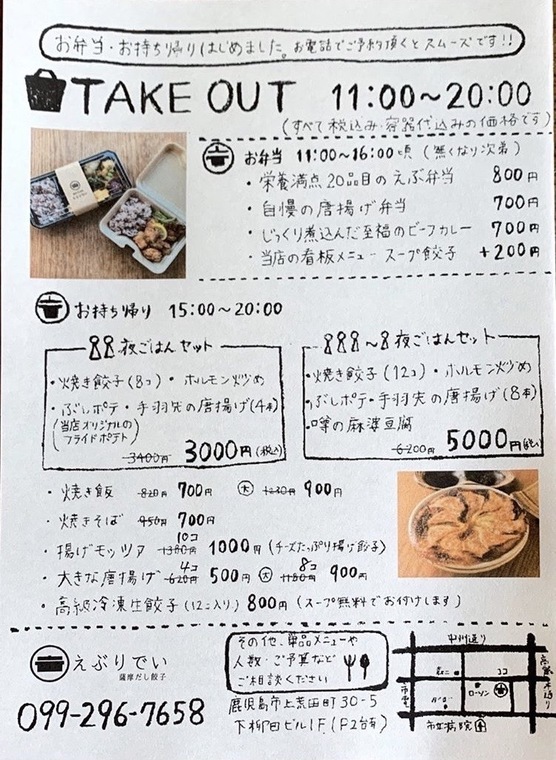 お弁当・お持ち帰りはじめました。お電話でご予約頂くとスムーズです!!
TAKE OUT 11:00～20:00
(すべて税込み・容器代込みの価格です)
お弁当 11:00～16:00頃 (無くなり次第)
・栄養満点20品目のえぶ弁当 800円
・自慢の唐揚げ弁当 700円
・じっくり煮込んだ至福のビーフカレー 700円
・当店の看板メニュー スープ餃子 +200円
お持ち帰り 15:00～20:00
夜ごはんセット
・焼き餃子(8コ)・ホルモン炒め
・ぶしポテ・手羽先の唐揚げ(4本)
(当店オリジナルの
フライドポテト)
3400円 3000円(税込)
～ 夜ごはんセット
・焼き餃子(12コ)・ホルモン炒め
・ぶしポテ・手羽先の唐揚げ(8本)
・噂の麻婆豆腐
6200円 5000円(税込)
・焼き飯 820円 700円 大 1230円 900円
・焼きそば 950円 700円
・揚げモッツァ 10コ 1380円 1000円 (チーズたっぷり揚げ餃子)
・大きな唐揚げ 4コ 620円 500円 大 8コ 1180円 900円
・高級冷凍生餃子(12コ入り) 800円 (スープ無料でお付けします)
えぶりでい
薩摩だし餃子
099-296-7658
その他、単品メニューや
人数・ご予算など
ご相談ください
鹿児島市上荒田町30-5
下柳田ビル1F (P2台有)
中州通り
ココ
ローソン
市立病院